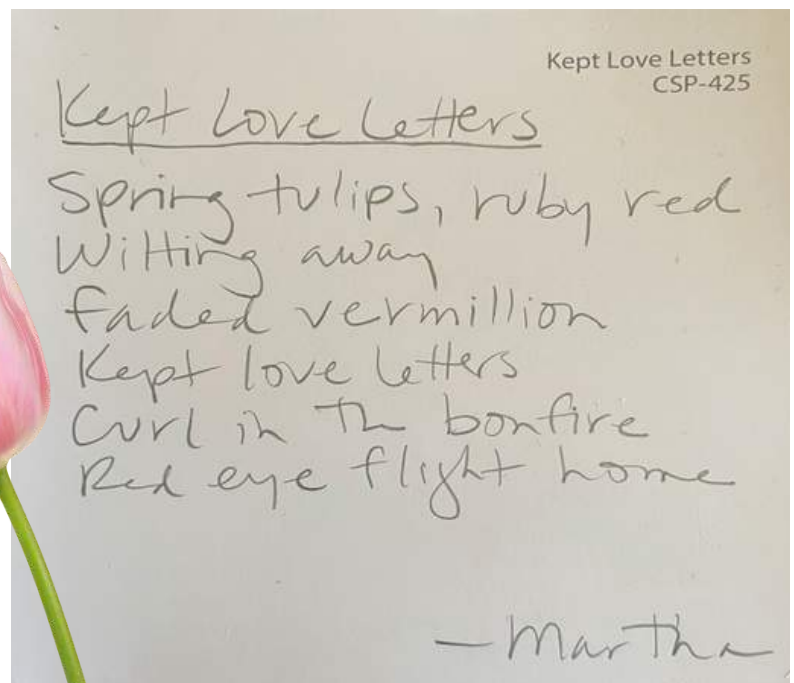 Kept Love Letters
CSP-425
Kept Love Letters
Spring tulips, ruby red
Wilting away
faded vermillion
Kept love letters
Curl in the bonfire
Red eye flight home
—Martha